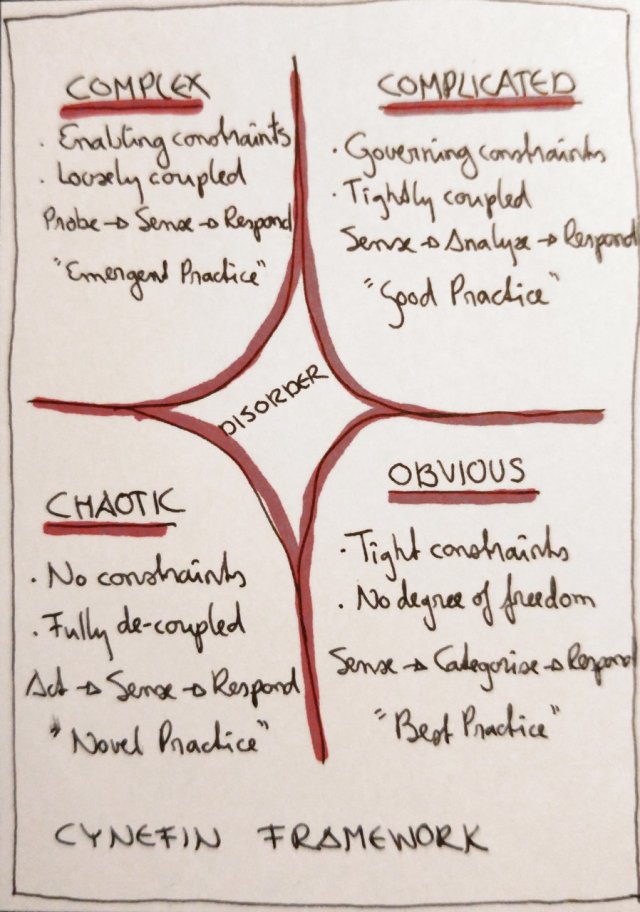 COMPLEX
· Enabling constraints
· Loosely coupled
Probe → Sense → Respond
"Emergent Practice"
COMPLICATED
· Governing constraints
· Tightly coupled
Sense → Analyze → Respond
"Good Practice"
DISORDER
CHAOTIC
· No constraints
· Fully de-coupled
Act → Sense → Respond
"Novel Practice"
OBVIOUS
· Tight constraints
· No degree of freedom
Sense → Categorise → Respond
"Best Practice"
CYNEFIN FRAMEWORK